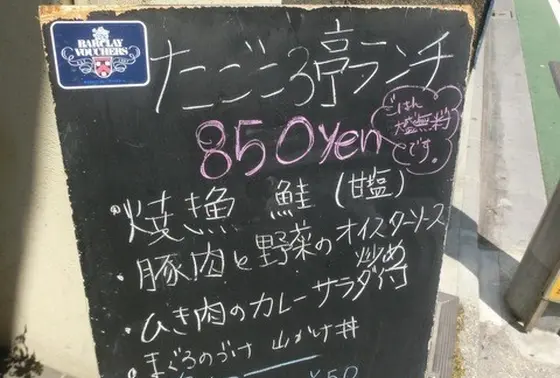 BARCLAY
VOUCHERS
たごころ亭ランチ
850yen
ごはん
大盛無料
です。
・焼漁 鮭 (甘塩)
・豚肉と野菜のオイスターソース
炒め
・ひき肉のカレーサラダ付
・まぐろのづけ 山かけ丼
¥50